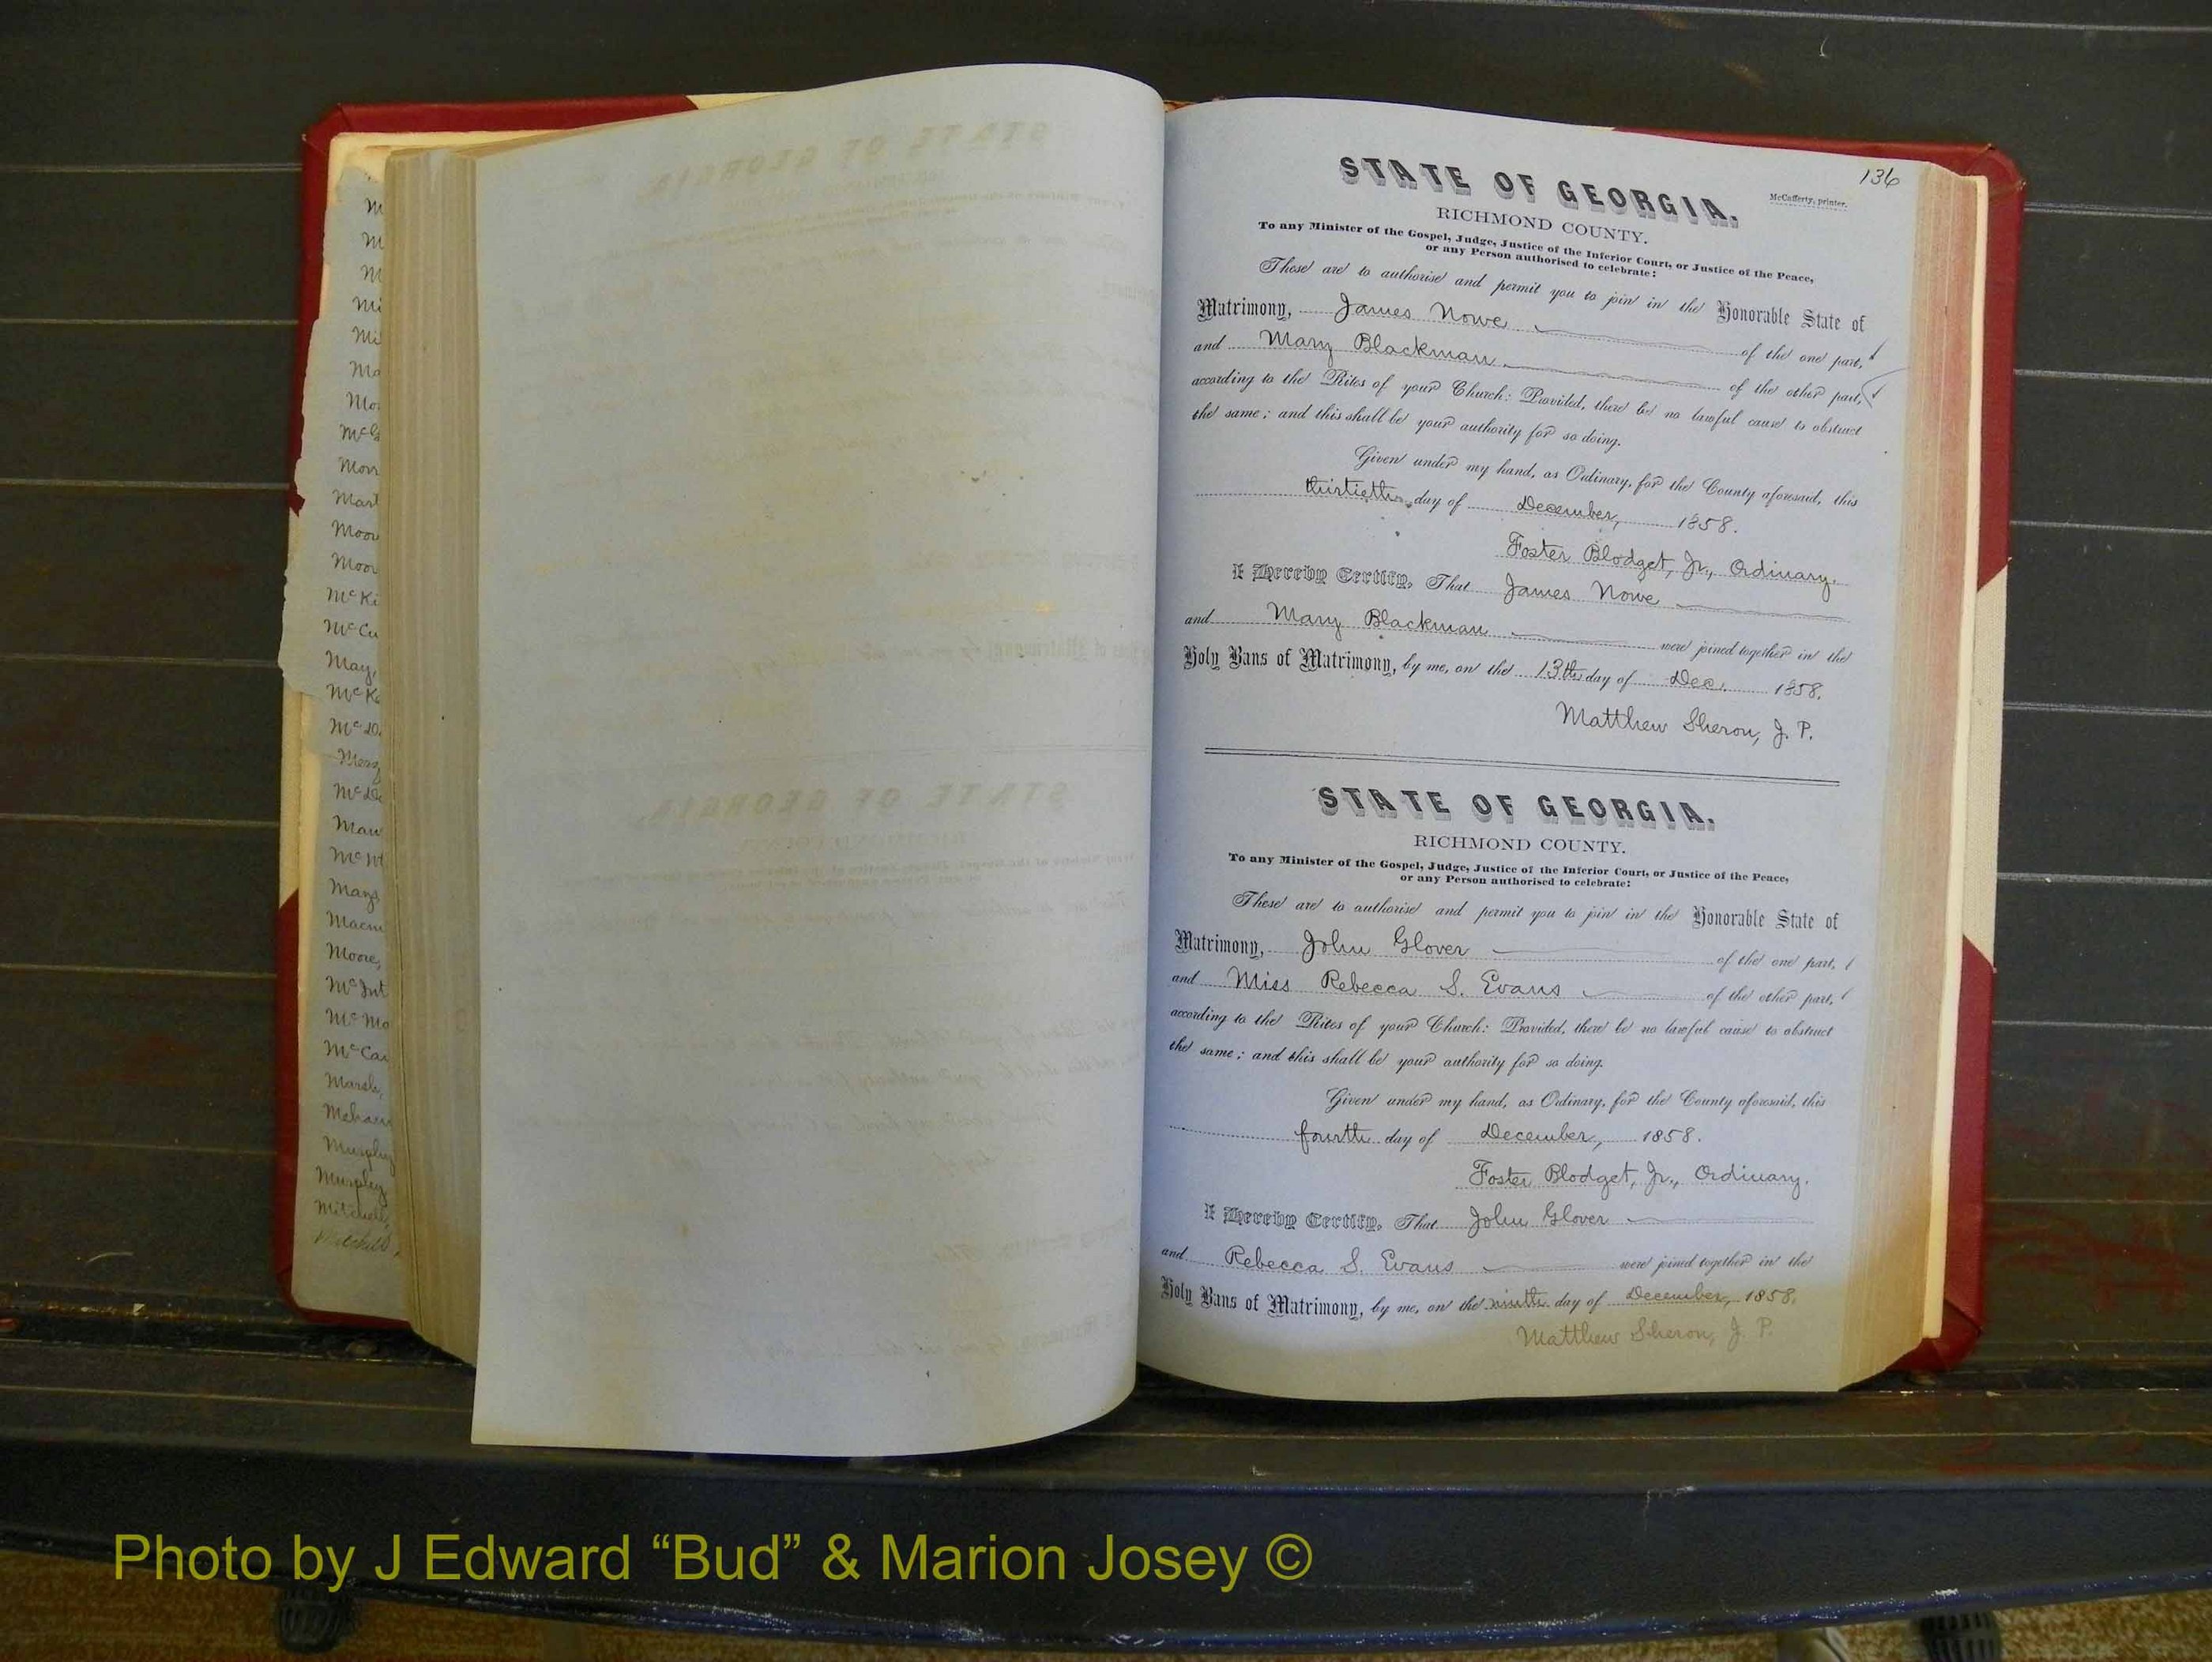 M
M
M
Mi
Mi
Mo
Mo
McG
Morr
Mart
Moor
Moor
McKi
McCu
May,
McK
McD
McDe
Mau
McM
Mays
Macm
Moore,
McInt
McMa
McCar
Marsh,
Mehaw
Murphy
Murphy
Mitchell,
Mitchell,
136
STATE OF GEORGIA.
McCafferty, printer.
RICHMOND COUNTY.
To any Minister of the Gospel, Judge, Justice of the Inferior Court, or Justice of the Peace,
or any Person authorised to celebrate:
These are to authorise and permit you to join in the Honorable State of
Matrimony, James Nowe of the one part,
and Mary Blackman of the other part,
according to the Rites of your Church: Provided, there be no lawful cause to obstruct
the same; and this shall be your authority for so doing.
Given under my hand, as Ordinary, for the County aforesaid, this
thirtieth day of December, 1858.
Foster Blodget, Jr., Ordinary.
I Hereby Certify, That James Nowe
and Mary Blackman were joined together in the
Holy Bans of Matrimony, by me, on the 13th day of Dec. 1858.
Matthew Sheron, J. P.
STATE OF GEORGIA.
RICHMOND COUNTY.
To any Minister of the Gospel, Judge, Justice of the Inferior Court, or Justice of the Peace,
or any Person authorised to celebrate:
These are to authorise and permit you to join in the Honorable State of
Matrimony, John Glover of the one part,
and Miss Rebecca S. Evans of the other part,
according to the Rites of your Church: Provided, there be no lawful cause to obstruct
the same; and this shall be your authority for so doing.
Given under my hand, as Ordinary, for the County aforesaid, this
fourth day of December, 1858.
Foster Blodget, Jr., Ordinary.
I Hereby Certify, That John Glover
and Rebecca S. Evans were joined together in the
Holy Bans of Matrimony, by me, on the ninth day of December, 1858.
Matthew Sheron, J. P.
Photo by J Edward “Bud” & Marion Josey ©